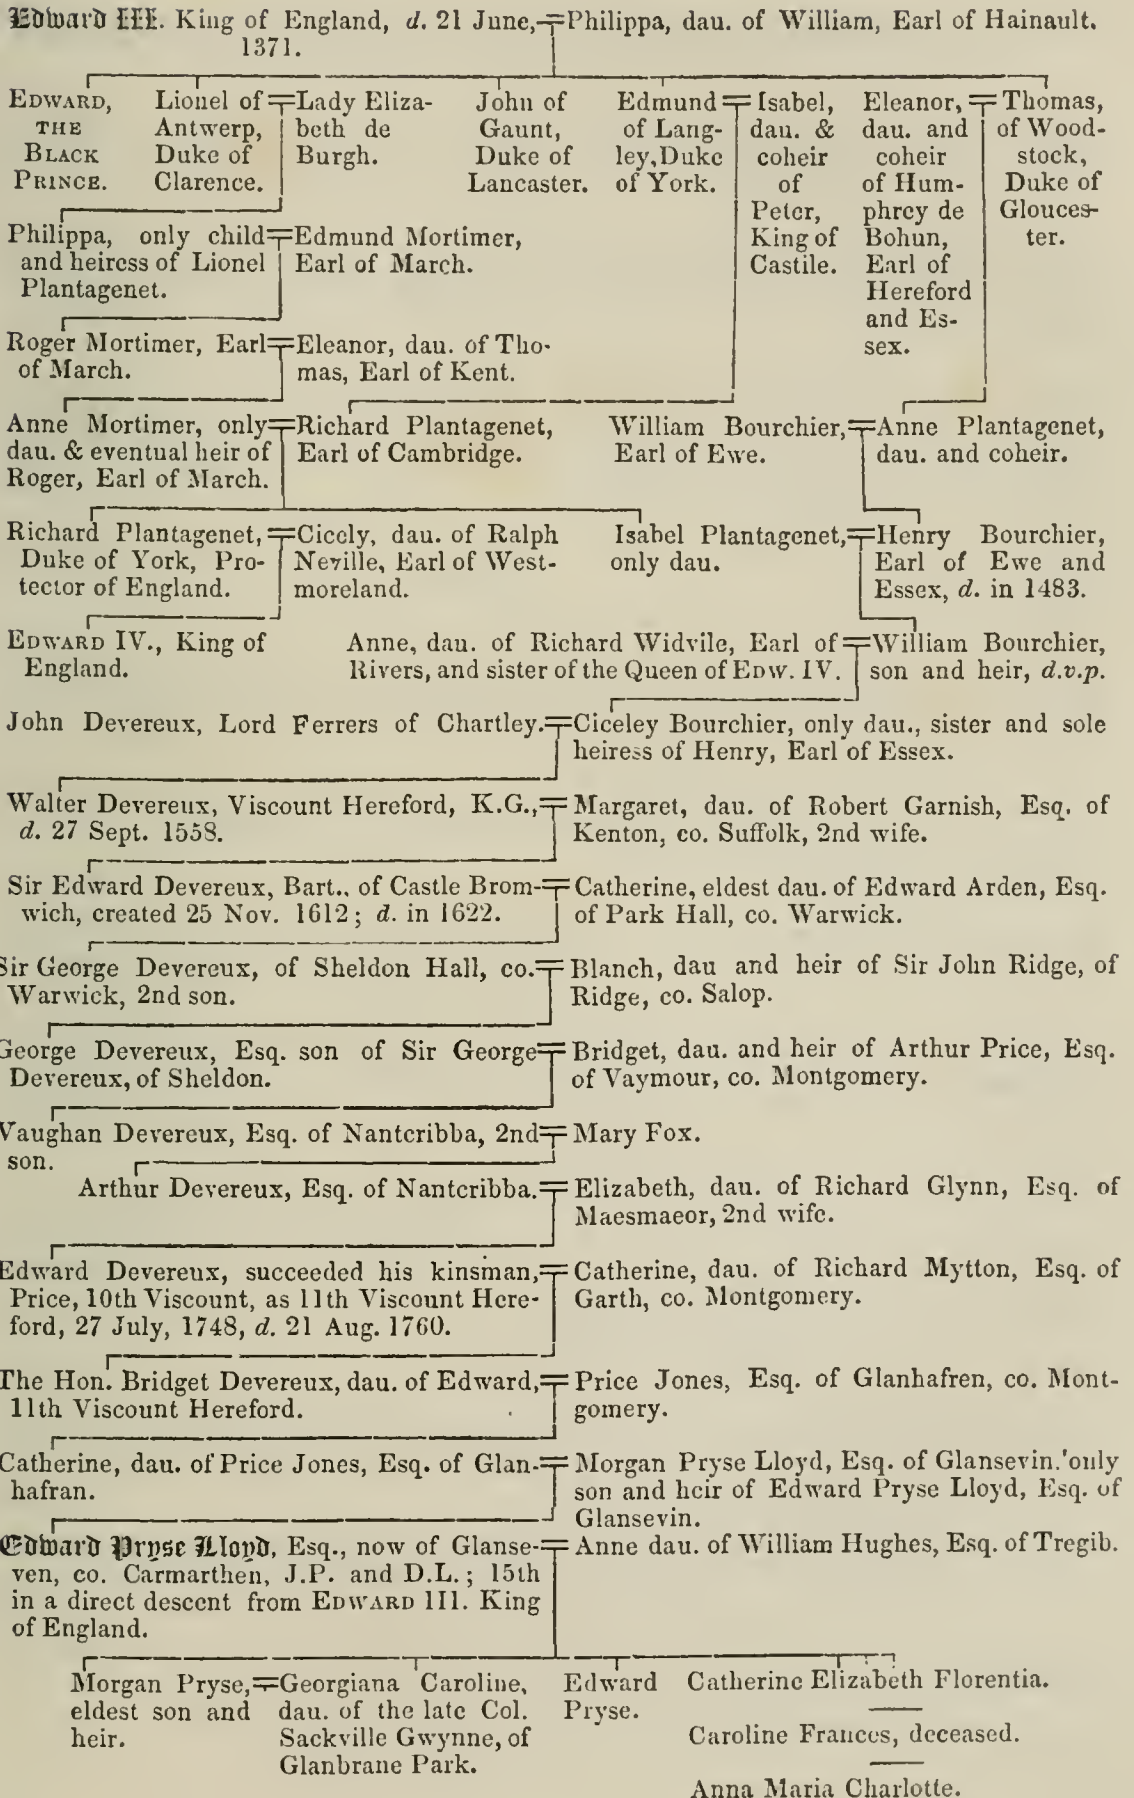 Edward III. King of England, d. 21 June, 1371.
Philippa, dau. of William, Earl of Hainault.
EDWARD,
THE
BLACK
PRINCE.
Lionel of
Antwerp,
Duke of
Clarence.
Lady Eliza-
beth de
Burgh.
John of
Gaunt,
Duke of
Lancaster.
Edmund
of Lang-
ley, Duke
of York.
Isabel,
dau. &
coheir
of
Peter,
King of
Castile.
Eleanor,
dau. and
coheir
of Hum-
phrey de
Bohun,
Earl of
Hereford
and Es-
sex.
Thomas,
of Wood-
stock,
Duke of
Glouces-
ter.
Philippa, only child
and heiress of Lionel
Plantagenet.
Edmund Mortimer,
Earl of March.
Roger Mortimer, Earl
of March.
Eleanor, dau. of Tho-
mas, Earl of Kent.
Anne Mortimer, only
dau. & eventual heir of
Roger, Earl of March.
Richard Plantagenet,
Earl of Cambridge.
William Bourchier,
Earl of Ewe.
Anne Plantagenet,
dau. and coheir.
Richard Plantagenet,
Duke of York, Pro-
tector of England.
Cicely, dau. of Ralph
Neville, Earl of West-
moreland.
Isabel Plantagenet,
only dau.
Henry Bourchier,
Earl of Ewe and
Essex, d. in 1483.
EDWARD IV., King of
England.
Anne, dau. of Richard Widvile, Earl of
Rivers, and sister of the Queen of EDW. IV.
William Bourchier,
son and heir, d.v.p.
John Devereux, Lord Ferrers of Chartley.
Ciceley Bourchier, only dau., sister and sole
heiress of Henry, Earl of Essex.
Walter Devereux, Viscount Hereford, K.G.,
d. 27 Sept. 1558.
Margaret, dau. of Robert Garnish, Esq. of
Kenton, co. Suffolk, 2nd wife.
Sir Edward Devereux, Bart., of Castle Brom-
wich, created 25 Nov. 1612; d. in 1622.
Catherine, eldest dau. of Edward Arden, Esq.
of Park Hall, co. Warwick.
Sir George Devereux, of Sheldon Hall, co.
Warwick, 2nd son.
Blanch, dau and heir of Sir John Ridge, of
Ridge, co. Salop.
George Devereux, Esq. son of Sir George
Devereux, of Sheldon.
Bridget, dau. and heir of Arthur Price, Esq.
of Vaymour, co. Montgomery.
Vaughan Devereux, Esq. of Nantcribba, 2nd
son.
Mary Fox.
Arthur Devereux, Esq. of Nantcribba.
Elizabeth, dau. of Richard Glynn, Esq. of
Maesmaeor, 2nd wife.
Edward Devereux, succeeded his kinsman,
Price, 10th Viscount, as 11th Viscount Here-
ford, 27 July, 1748, d. 21 Aug. 1760.
Catherine, dau. of Richard Mytton, Esq. of
Garth, co. Montgomery.
The Hon. Bridget Devereux, dau. of Edward,
11th Viscount Hereford.
Price Jones, Esq. of Glanhafren, co. Mont-
gomery.
Catherine, dau. of Price Jones, Esq. of Glan-
hafran.
Morgan Pryse Lloyd, Esq. of Glansevin. only
son and heir of Edward Pryse Lloyd, Esq. of
Glansevin.
Edward Pryse Lloyd, Esq., now of Glanse-
ven, co. Carmarthen, J.P. and D.L.; 15th
in a direct descent from EDWARD III. King
of England.
Anne dau. of William Hughes, Esq. of Tregib.
Morgan Pryse,
eldest son and
heir.
Georgiana Caroline,
dau. of the late Col.
Sackville Gwynne, of
Glanbrane Park.
Edward
Pryse.
Catherine Elizabeth Florentia.
Caroline Frances, deceased.
Anna Maria Charlotte.